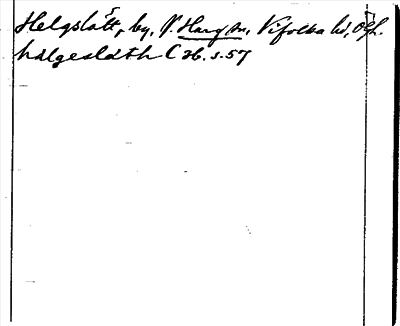 Helgslätt, by, V. Harg sn, Vifolka hd, Ögl.
halgeslæth C 26. s. 57